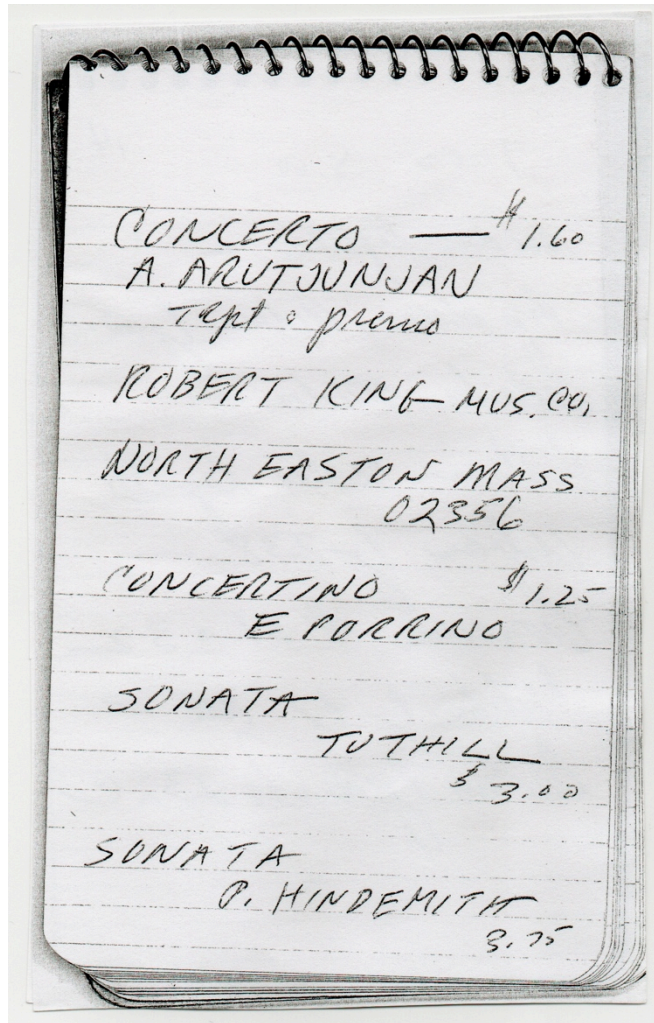 CONCERTO — $1.60
A. ARUTJUNJAN
Tept & piano
ROBERT KING MUS. CO,
NORTH EASTON MASS
02356
CONCERTINO $1.25
E PORRINO
SONATA
TUTHILL
$ 3.00
SONATA
P. HINDEMITH
3.75